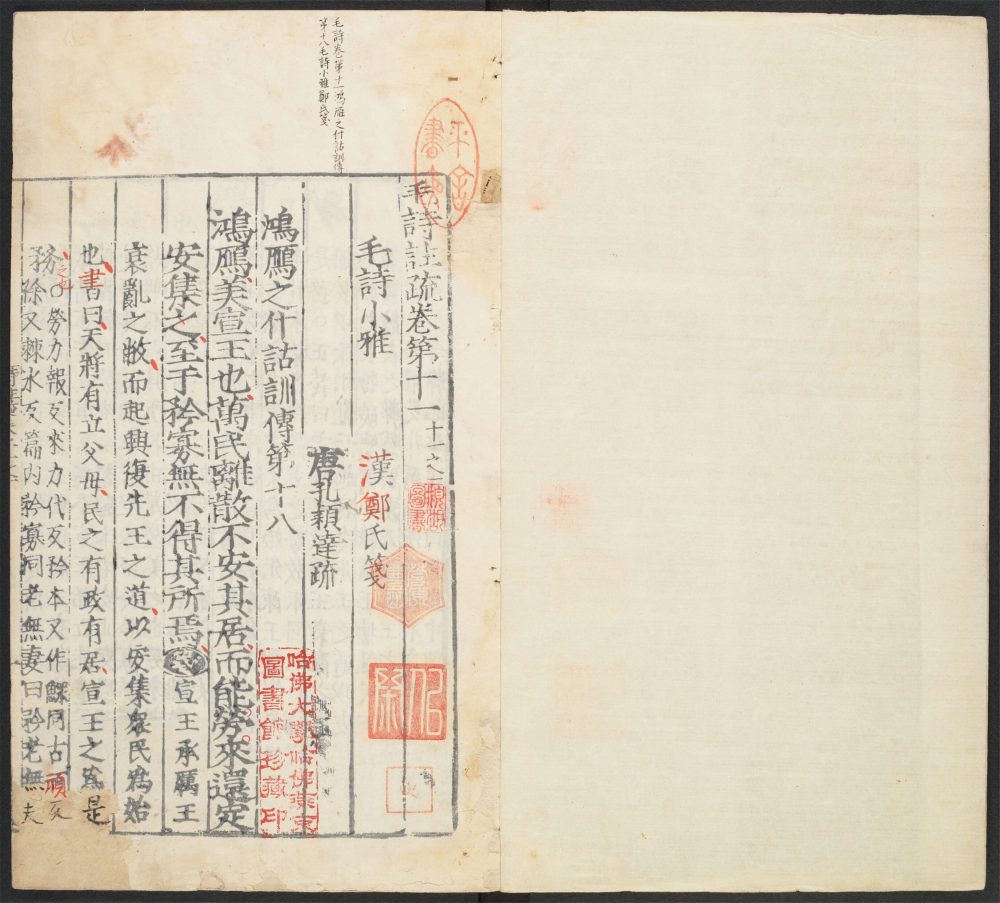 毛詩註疏卷第十一 十一之一
毛詩小雅
漢鄭氏箋
唐孔穎達疏
鴻鴈之什詁訓傳第十八
鴻鴈美宣王也萬民離散不安其居而能勞來還定
安集之至于矜寡無不得其所焉
宣王承厲王
衰亂之敝而起興復先王之道以安集衆民爲始
也書曰天將有立父母民之有政有居宣王之爲是
務之也○勞力報反來力代反矜本又作鰥同古頑反
注篇內矜寡同老無妻曰矜老無夫
毛詩卷第十一鴻鴈之什詁訓傳
第十八毛詩小雅鄭氏箋
哈佛大學哈佛燕京
圖書館珍藏印